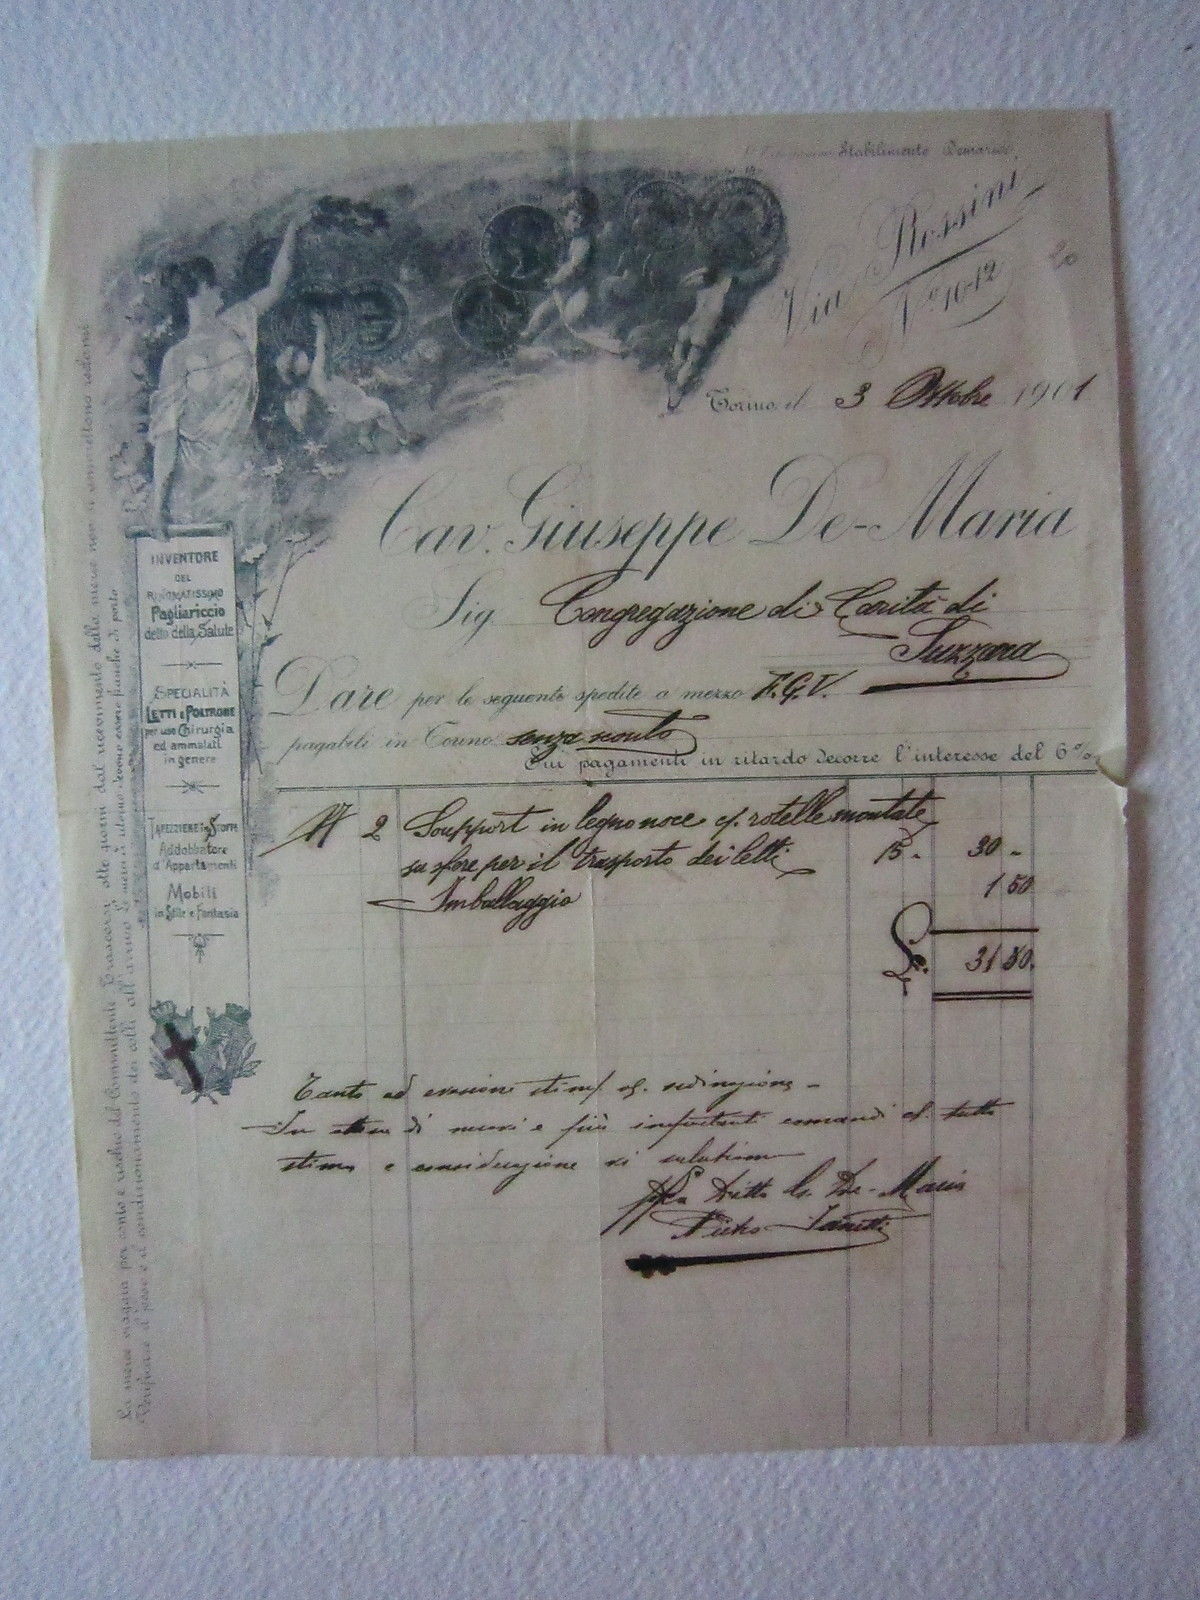 Stabilimento
Via Rossini
N.º 10-12
Torino, il 3 Ottobre 1901
Cav. Giuseppe De-Maria
Sig. Congregazione di Carità di
Suzzara
Dare per le seguenti spedite a mezzo F.G.V.
pagabili in Torino senza sconto
Sui pagamenti in ritardo decorre l'interesse del 6%
2 Support in legno noce c/. rotelle montate
su sfere per il trasporto dei letti 15 - 30 -
Imballaggio 1 50
L. 31 50
Tanto ad evasione
In attesa di nuovi e più importanti comandi c/. tutta
stima e considerazione vi salutiamo
Ditta G. De-Maria
Pietro
INVENTORE
DEL
RINOMATISSIMO
Pagliariccio
detto della Salute
SPECIALITÀ
LETTI e POLTRONE
per uso Chirurgia
ed ammalati
in genere
TAPEZZIERE IN STOFFE
Addobbatore
d'Appartamenti
Mobili
in Stile e Fantasia
La merce viaggia per conto e rischio del Committente. Trascorsi otto giorni dal ricevimento della merce non si accettano reclami
Verificare il peso e il condizionamento dei colli all'arrivo. Le di ritorno devono essere franche di porto